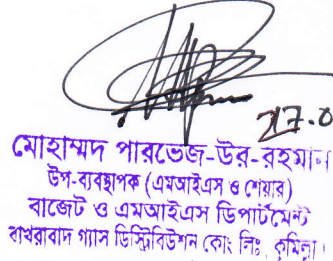 ২7.0
মোহাম্মদ পারভেজ-উর-রহমান
উপ-ব্যবস্থাপক (এমআইএস ও শেয়ার)
বাজেট ও এমআইএস ডিপার্টমেন্ট
বাখরাবাদ গ্যাস ডিস্ট্রিবিউশন কোং লিঃ, কুমিল্লা।